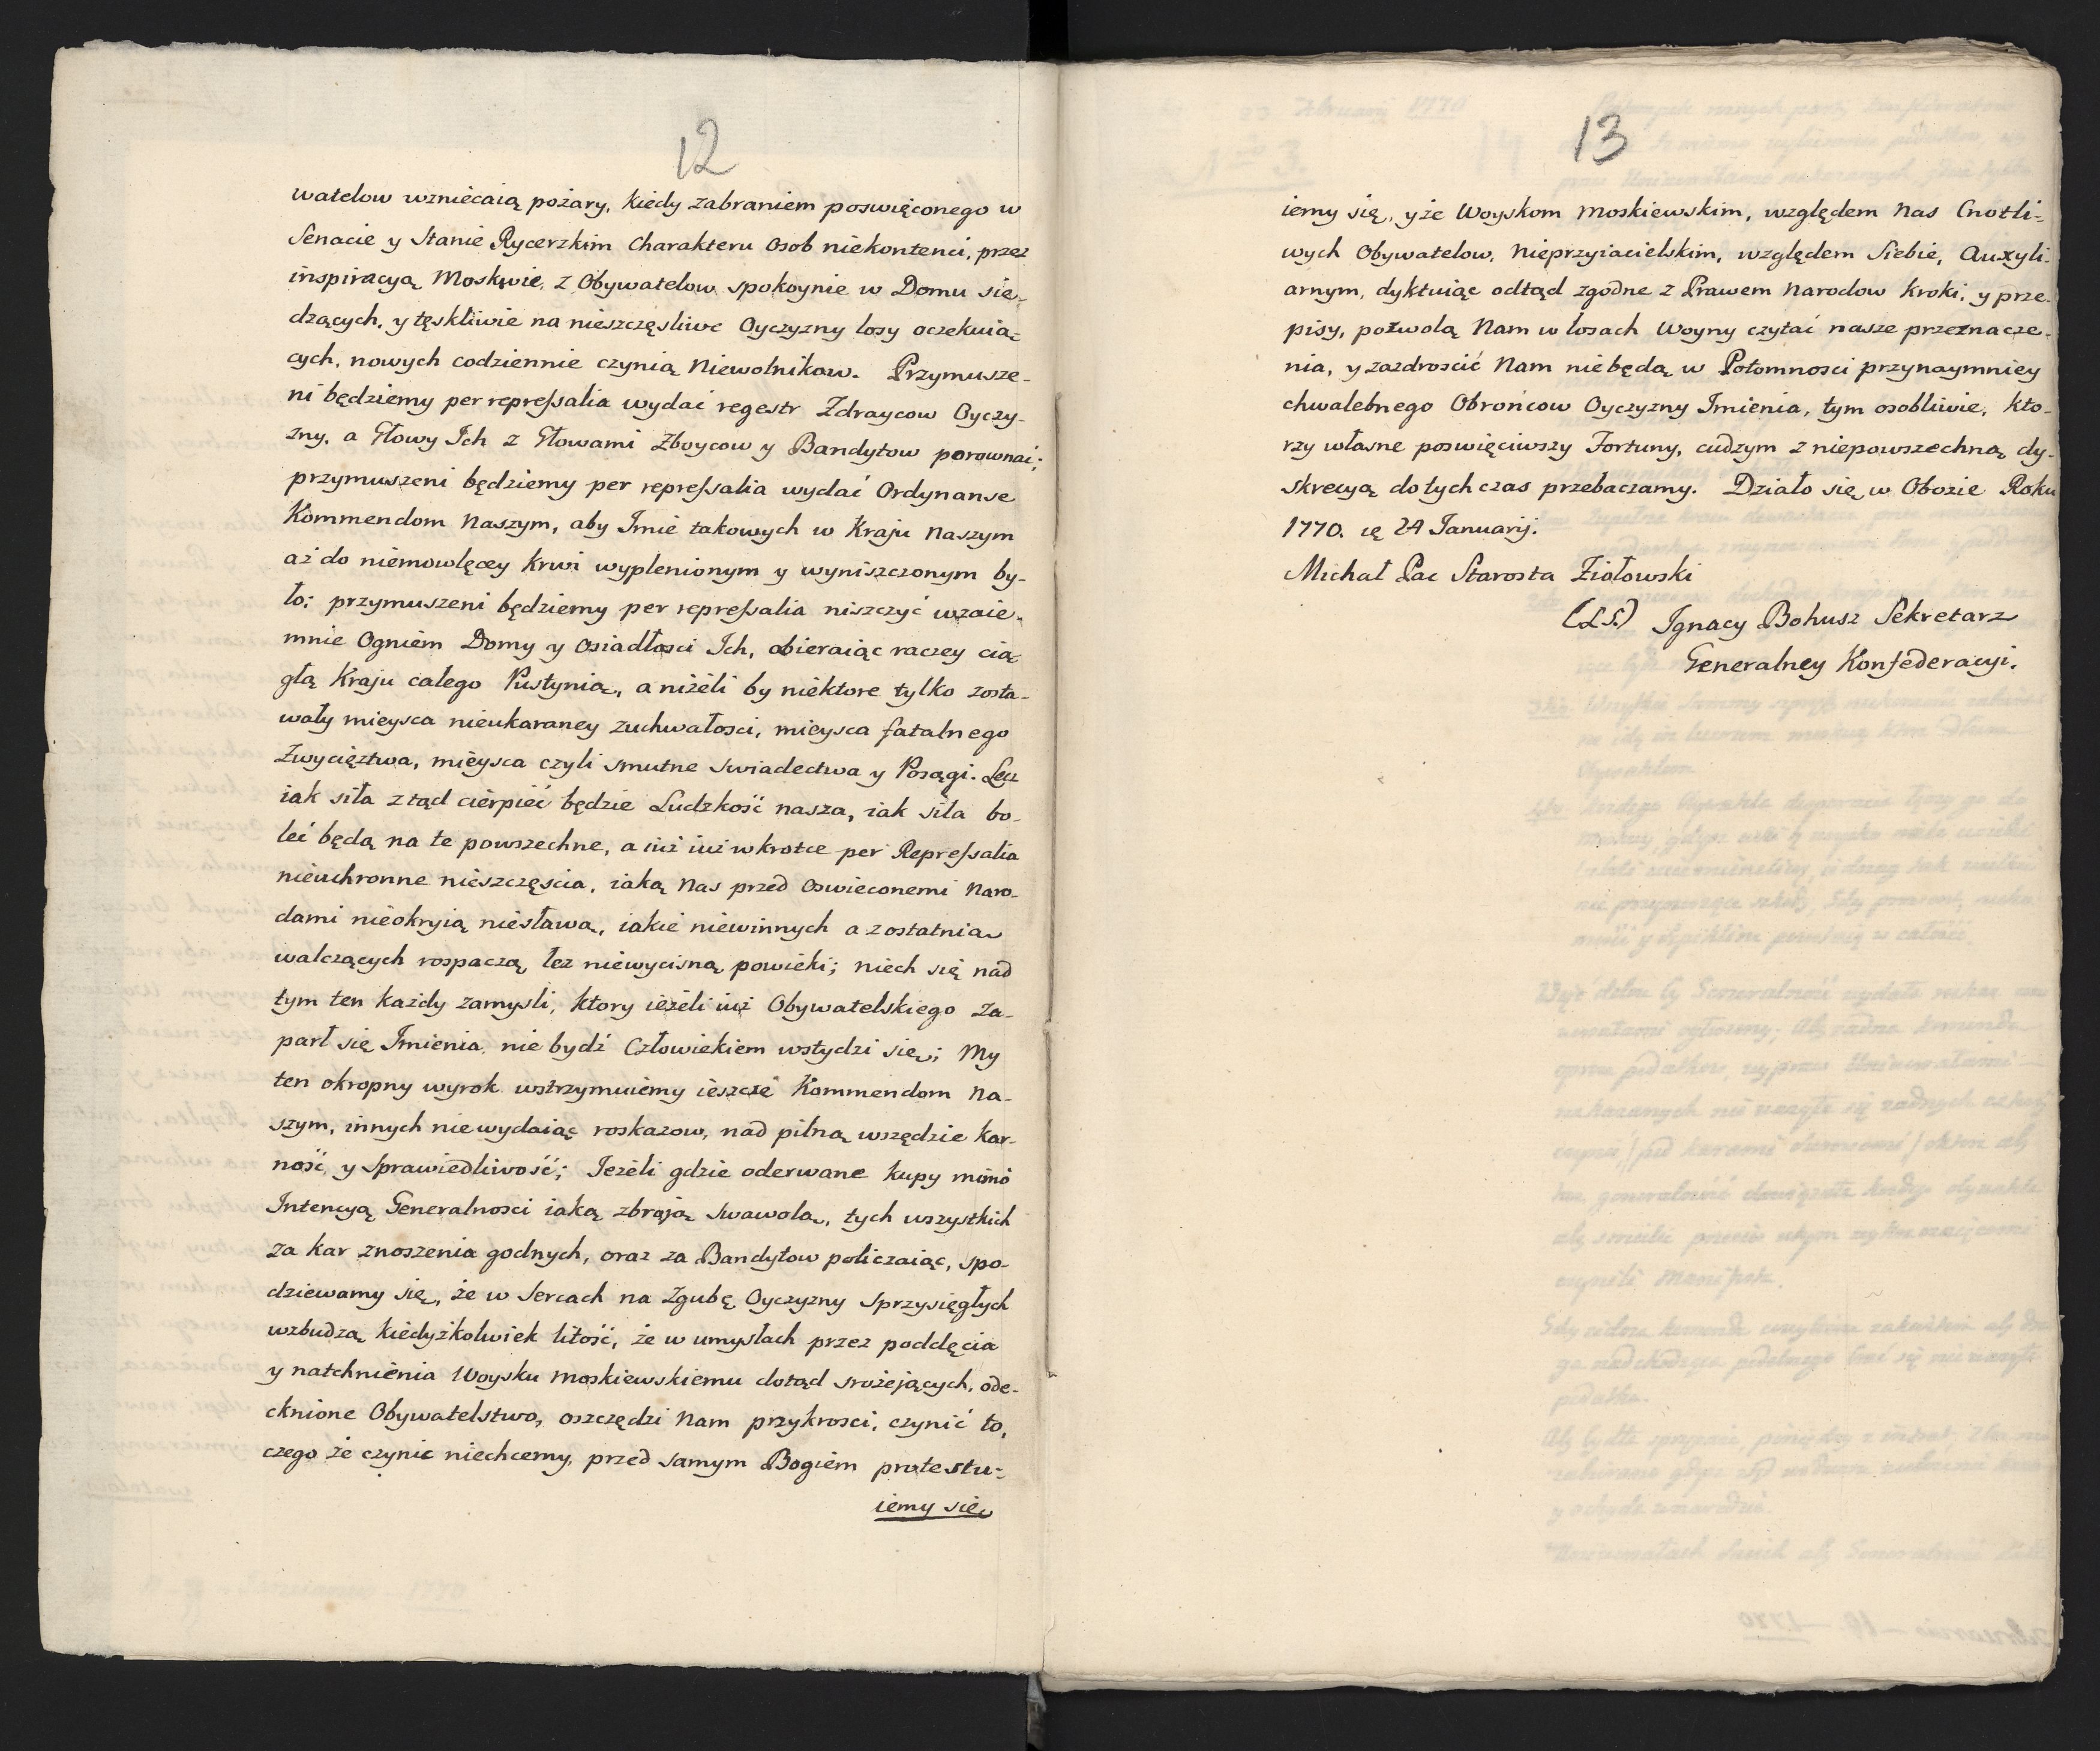 12
watelow wzniecaią pożary, kiedy zabraniem poswięconego w
Senacie y Stanie Rycerzkim Charakteru Osob niekontenci, przez
inspiracyą Moskwie, z Obywatelow spokoynie w Domu sie-
dzących, y tęskliwie na nieszczęsliwe Oyczyzny losy oczekuią-
cych, nowych codziennie czynią Niewolnikow. Przymusze-
ni będziemy per repressalia wydać regestr Zdraycow Oyczy-
zny, a Głowy Ich z Głowami Zboycow y Bandytow porownać;
przymuszeni będziemy per repressalia wydać Ordynanse
Kommendom Naszym, aby Imie takowych w Kraju Naszym
aż do niemowlęcey Krwi wyplenionym y wyniszczonym by-
ło; przymuszeni będziemy per repressalia niszczyć wzaie-
mnie Ogniem Domy y Osiadłosci Ich, obieraiąc raczey cią-
głą Kraju całego Pustynią, a niżeli by niektore tylko zosta-
wały mieysca nieukaraney zuchwałosci, mieysca fatalnego
Zwycięztwa, mieysca czyli smutne swiadectwa y Posągi. Lecz
iak siła ztąd cierpieć będzie Ludzkość nasza, iak siła bo-
leć będą na te powszechne, a iuż iuż wkrotce per Repressalia
nieuchronne nieszczęscia, iaką Nas przed Oswieconemi Naro-
dami nieokryią niesławą, iakie niewinnych a zostatnią
walczących rospaczą, łez niewycisną powieki; niech się nad
tym ten każdy zamysli, ktory ieżeli iuż Obywatelskiego Za-
parł się Imienia, nie bydź Człowiekiem wstydzi się; My
ten okropny wyrok wstrzymuiemy ieszcze Kommendom Na-
szym, innych niewydaiąc roskazow, nad pilną wszędzie Kar-
ność, y Sprawiedliwość; Jeżeli gdzie oderwane kupy mimo
Intencyą Generalnosci iaką zbroją swawolą, tych wszystkich
za kar znoszenia godnych, oraz za Bandytow policzaiąc, spo-
dziewamy się, że w Sercach na Zgubę Oyczyzny Sprzysięgłych
wzbudzą kiedyżkolwiek litość, że w umysłach przez poddęcia
y natchnienia Woysku Moskiewskiemu dotąd srożejących, ode-
cknione Obywatelstwo, oszczędzi Nam przykrosci, czynić to,
czego że czynić niechcemy, przed samym Bogiem protestu-
iemy się
13
iemy się, y że Woyskom Moskiewskim, względem Nas Cnotli-
wych Obywatelow, Nieprzyiacielskim, względem Siebie, Auxyli-
arnym, dyktuiąc odtąd zgodne z Prawem Narodow Kroki, y prze-
pisy, pozwolą Nam w losach Woyny czytać nasze przeznacze-
nia, y zazdroscić Nam niebędą w Potomnosci przynaymniey
chwalebnego Obrońcow Oyczyzny Imienia, tym osobliwie, kto-
rzy własne poswięciwszy Fortuny, cudzym z niepowszechną dy-
skrecyą dotychczas przebaczamy. Działo się w Obozie Roku
1770. ię 24 Januarij.
Michał Pac Starosta Ziołowski
(L.S.) Ignacy Bohusz Sekretarz
Generalney Konfederacyi.